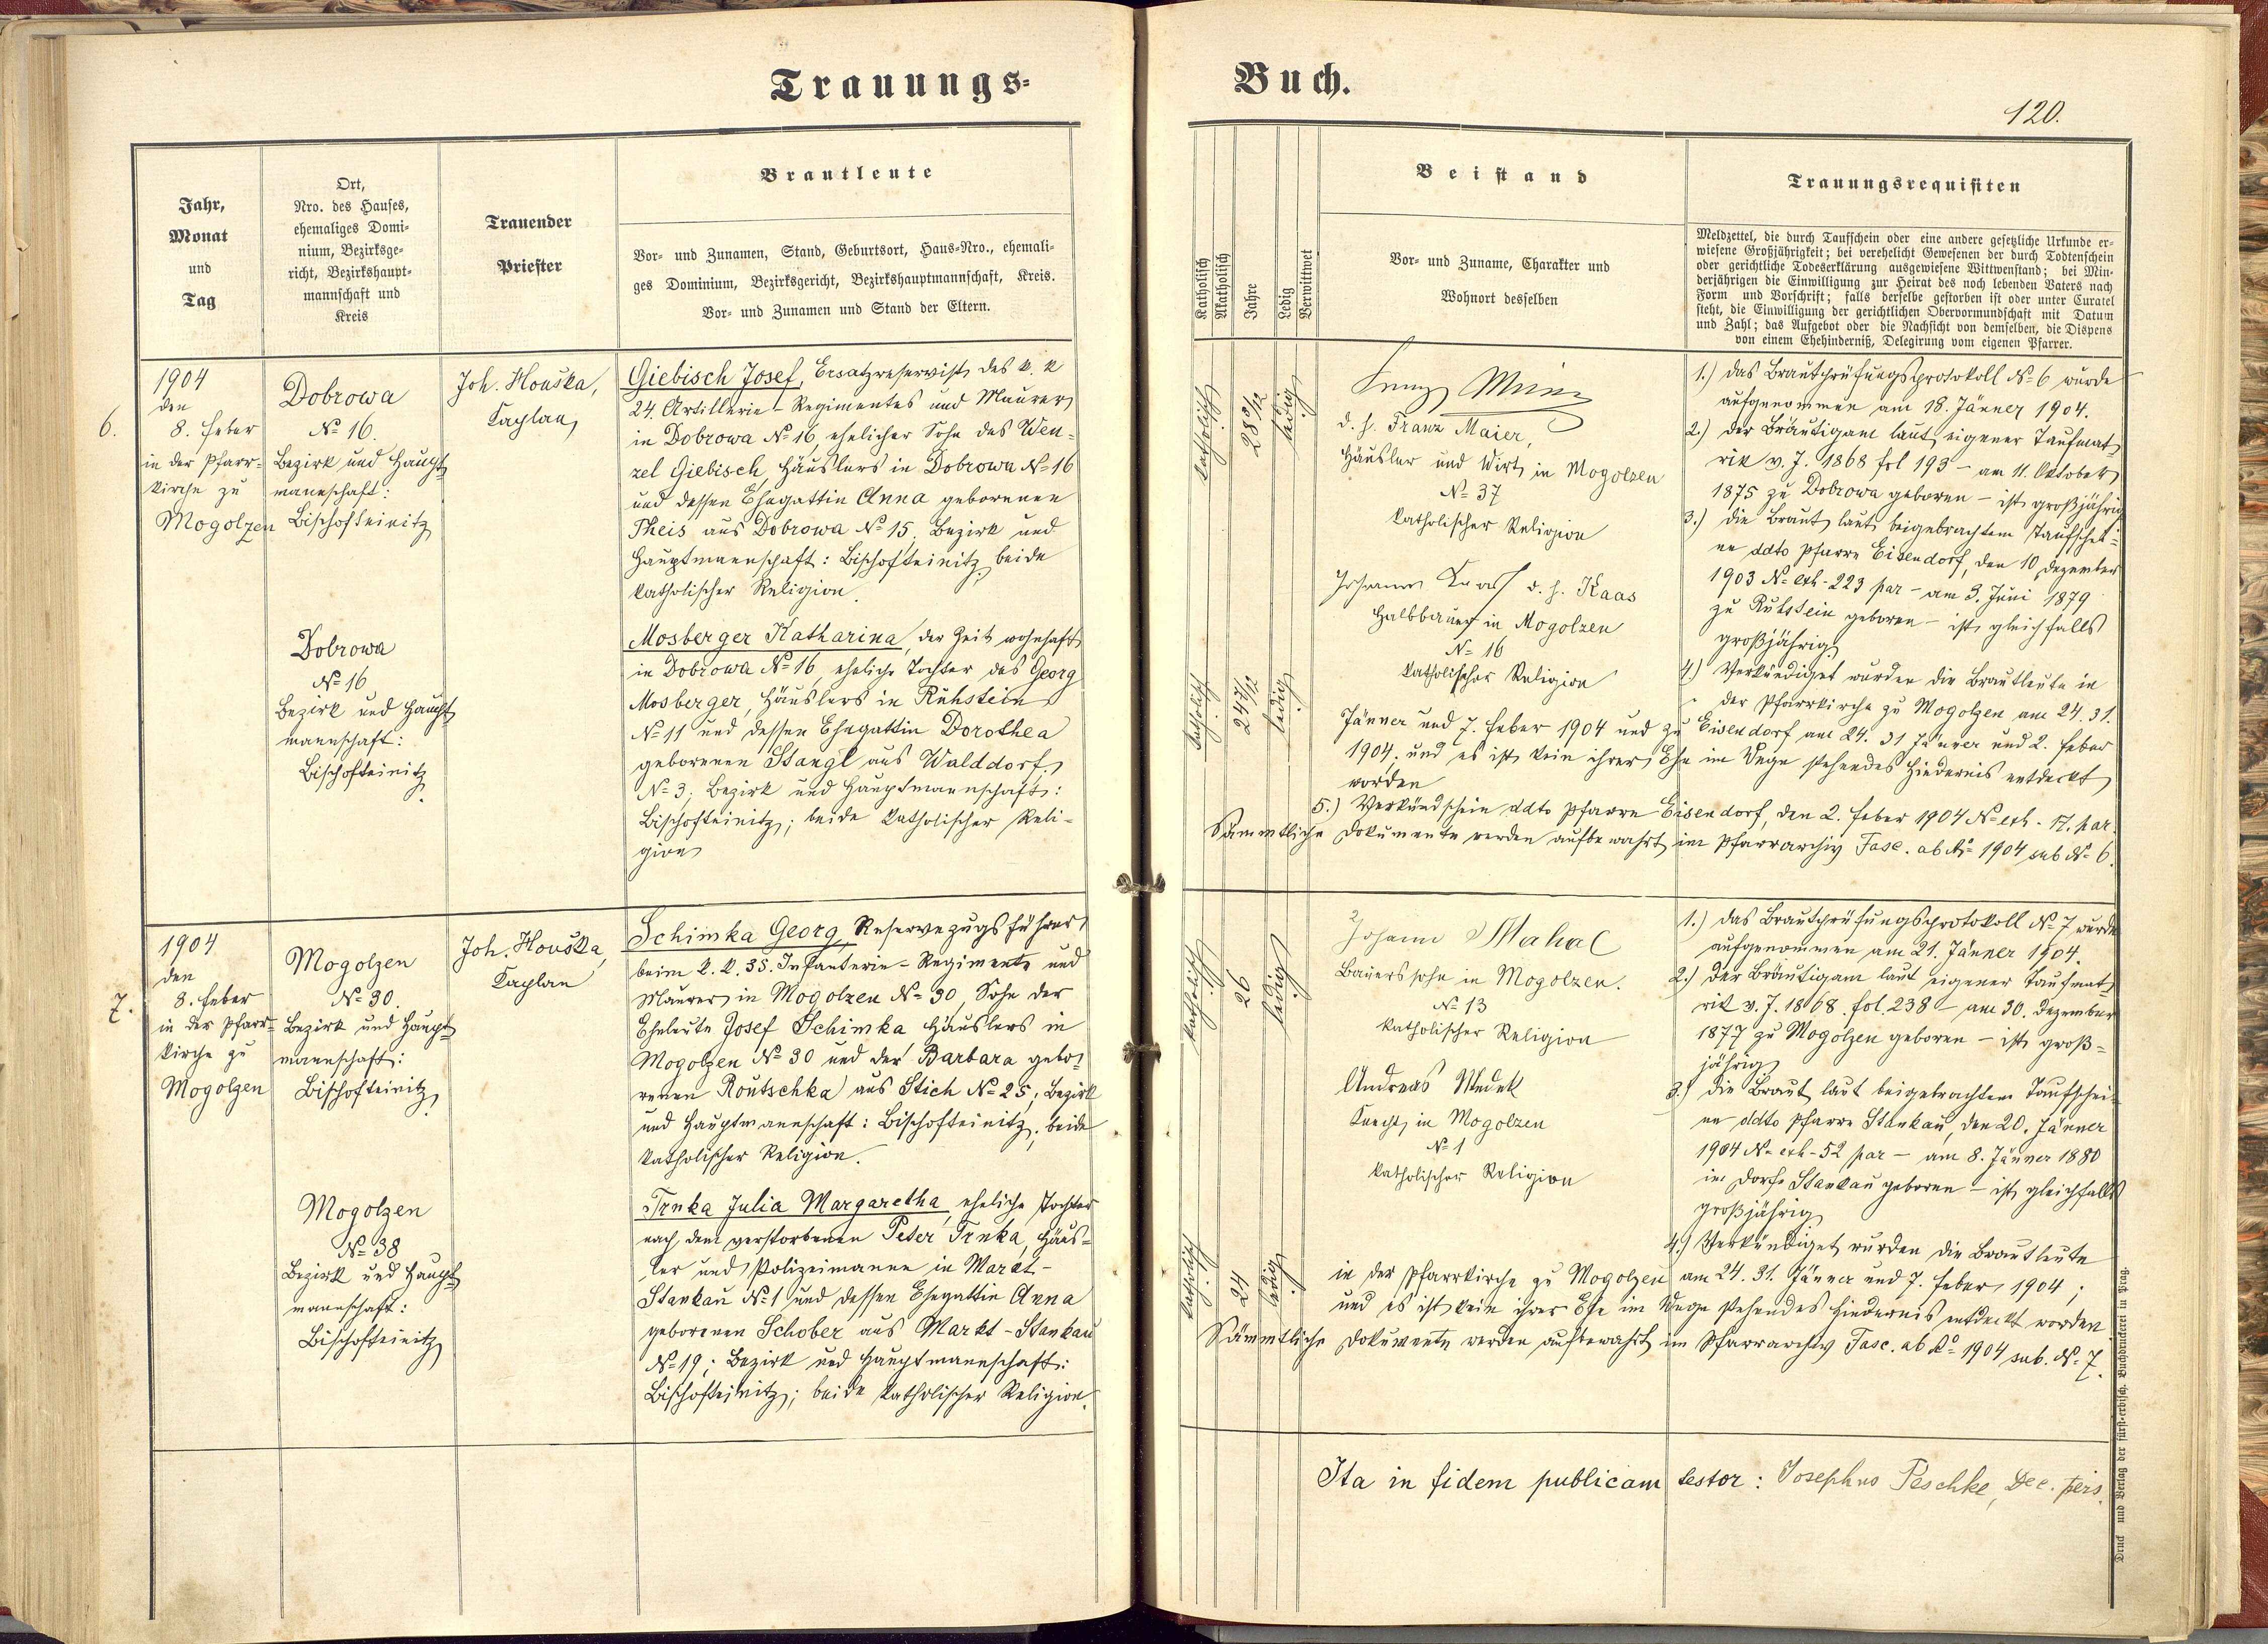 Trauungs-
Buch.
120.
Jahr,
Monat
und
Tag
Ort,
Nro. des Hauses,
ehemaliges Domi-
nium, Bezirksge-
richt, Bezirkshaupt-
mannschaft und
Kreis
Trauender
Priester
Brautleute
Vor- und Zunamen, Stand, Geburtsort, Haus-Nro., ehemali-
ges Dominium, Bezirksgericht, Bezirkshauptmannschaft, Kreis.
Vor- und Zunamen und Stand der Eltern.
Katholisch
Akatholisch
Jahre
Ledig
Verwittwet
Beistand
Vor- und Zuname, Charakter und
Wohnort desselben
Trauungsrequisiten
Meldzettel, die durch Taufschein oder eine andere gesetzliche Urkunde er-
wiesene Großjährigkeit; bei verehelicht Gewesenen der durch Todtenschein
oder gerichtliche Todeserklärung ausgewiesene Wittwenstand; bei Min-
derjährigen die Einwilligung zur Heirat des noch lebenden Vaters nach
Form und Vorschrift; falls derselbe gestorben ist oder unter Curatel
steht, die Einwilligung der gerichtlichen Obervormundschaft mit Datum
und Zahl; das Aufgebot oder die Nachsicht von demselben, die Dispens
von einem Ehehinderniß, Delegirung vom eigenen Pfarrer.
6.
1904
den
8. Feber
in der Pfarr-
kirche zu
Mogolzen
Dobrowa
No 16.
Bezirk und Haupt-
mannschaft:
Bischofteinitz
Dobrowa
No 16
Bezirk und Haupt-
mannschaft:
Bischofteinitz.
Joh. Houška,
Kaplan
Giebisch Josef, Ersatzreservist des k. k
24. Artillerie-Regimentes und Maurer
in Dobrowa No 16, ehelicher Sohn des Wen-
zel Giebisch, Häuslers in Dobrowa No 16
und dessen Ehegattin Anna geborenen
Theis aus Dobrowa No 15. Bezirk und
Hauptmannschaft: Bischofteinitz; beide
katholischer Religion.
Mosberger Katharina, der Zeit wohnhaft
in Dobrowa No 16, eheliche Tochter des Georg
Mosberger, Häuslers in Ruhstein
No 11 und dessen Ehegattin Dorothea
geborenen Stangl aus Walddorf
No 3; Bezirk und Hauptmannschaft:
Bischofteinitz; beide katholischer Reli-
gion
katholisch
28 3/12
ledig
katholisch
24 7/12
ledig
d. h. Franz Maier,
Häusler und Wirt in Mogolzen
No 37
katholischer Religion
Johann Kaas d. h. Kaas
Halbbauer in Mogolzen
No 16
katholischer Religion
1.) Das Brautprüfungsprotokoll No 6 wurde
aufgenommen am 18. Jänner 1904.
2.) Der Bräutigam laut eigener Taufmat-
rik v. J. 1868 fol 193 - am 11. Oktober
1875 zu Dobrowa geboren - ist großjährig
3.) Die Braut laut beigebrachtem Taufschei-
ne ddto Pfarre Eisendorf, den 10. Dezember
1903 No exh. 223 par - am 3. Juni 1879
zu Ruhstein geboren - ist gleichfalls
großjährig
4.) Verkündiget wurden die Brautleute in
der Pfarrkirche zu Mogolzen am 24. 31.
Jänner und 7. Feber 1904 und zu Eisendorf am 24. 31 Jänner und 2. Feber
1904. und es ist kein ihrer Ehe im Wege stehendes Hindernis entdeckt
worden
5.) Verkündschein ddto Pfarre Eisendorf, den 2. Feber 1904 No exh. 17. par.
Sämmtliche Dokumente werden aufbewahrt im Pfarrarchiv Fasc. ab Ao 1904 sub No 6.
7.
1904
den
8. Feber
in der Pfarr-
kirche zu
Mogolzen
Mogolzen
No 30.
Bezirk und Haupt-
mannschaft:
Bischofteinitz
Mogolzen
No 38
Bezirk und Haupt-
mannschaft:
Bischofteinitz
Joh. Houška,
Kaplan
Schimka Georg, Reservezugsführer
beim k. k. 35. Infanterie-Regimente und
Maurer in Mogolzen No 30, Sohn der
Eheleute Josef Schimka Häuslers in
Mogolzen No 30 und der Barbara gebo-
renen Routschka aus Stich No 25; Bezirk
und Hauptmannschaft: Bischofteinitz; beide
katholischer Religion.
Trnka Julia Margaretha, eheliche Tochter
nach dem verstorbenen Peter Trnka, Häus-
ler und Polizeimanne in Markt-
Stankau No 1 und dessen Ehegattin Anna
geborenen Schober aus Markt-Stankau
No 19; Bezirk und Hauptmannschaft:
Bischofteinitz; beide katholischer Religion.
katholisch
26
ledig
katholisch
24
ledig
Johann Mahal
Bauerssohn in Mogolzen.
No 13
katholischer Religion
Andreas
Knecht in Mogolzen
No 1
katholischer Religion
1.) Das Brautprüfungsprotokoll No 7 wurde
aufgenommen am 21. Jänner 1904.
2.) Der Bräutigam laut eigener Taufmat-
rik v. J. 1868. fol. 238 - am 30. Dezember
1877 zu Mogolzen geboren - ist groß-
jährig
3.) Die Braut laut beigebrachtem Taufschei-
ne ddto Pfarre Stankau, den 20. Jänner
1904 No exh. 52 par - am 8. Jänner 1880
im Dorfe Stankau geboren - ist gleichfalls
großjährig
4.) Verkündiget wurden die Brautleute
in der Pfarrkirche zu Mogolzen am 24. 31. Jänner und 7. Feber 1904;
und es ist kein ihrer Ehe im Wege stehendes Hindernis entdeckt worden
Sämmtliche Dokumente werden aufbewahrt im Pfarrarchiv Fasc. ab Ao 1904 sub. No 7.
Ita in fidem publicam testor: Josephus Peschke, Dec. pers.
Druck und Verlag der fürst-erzbisch. Buchdruckerei in Prag.